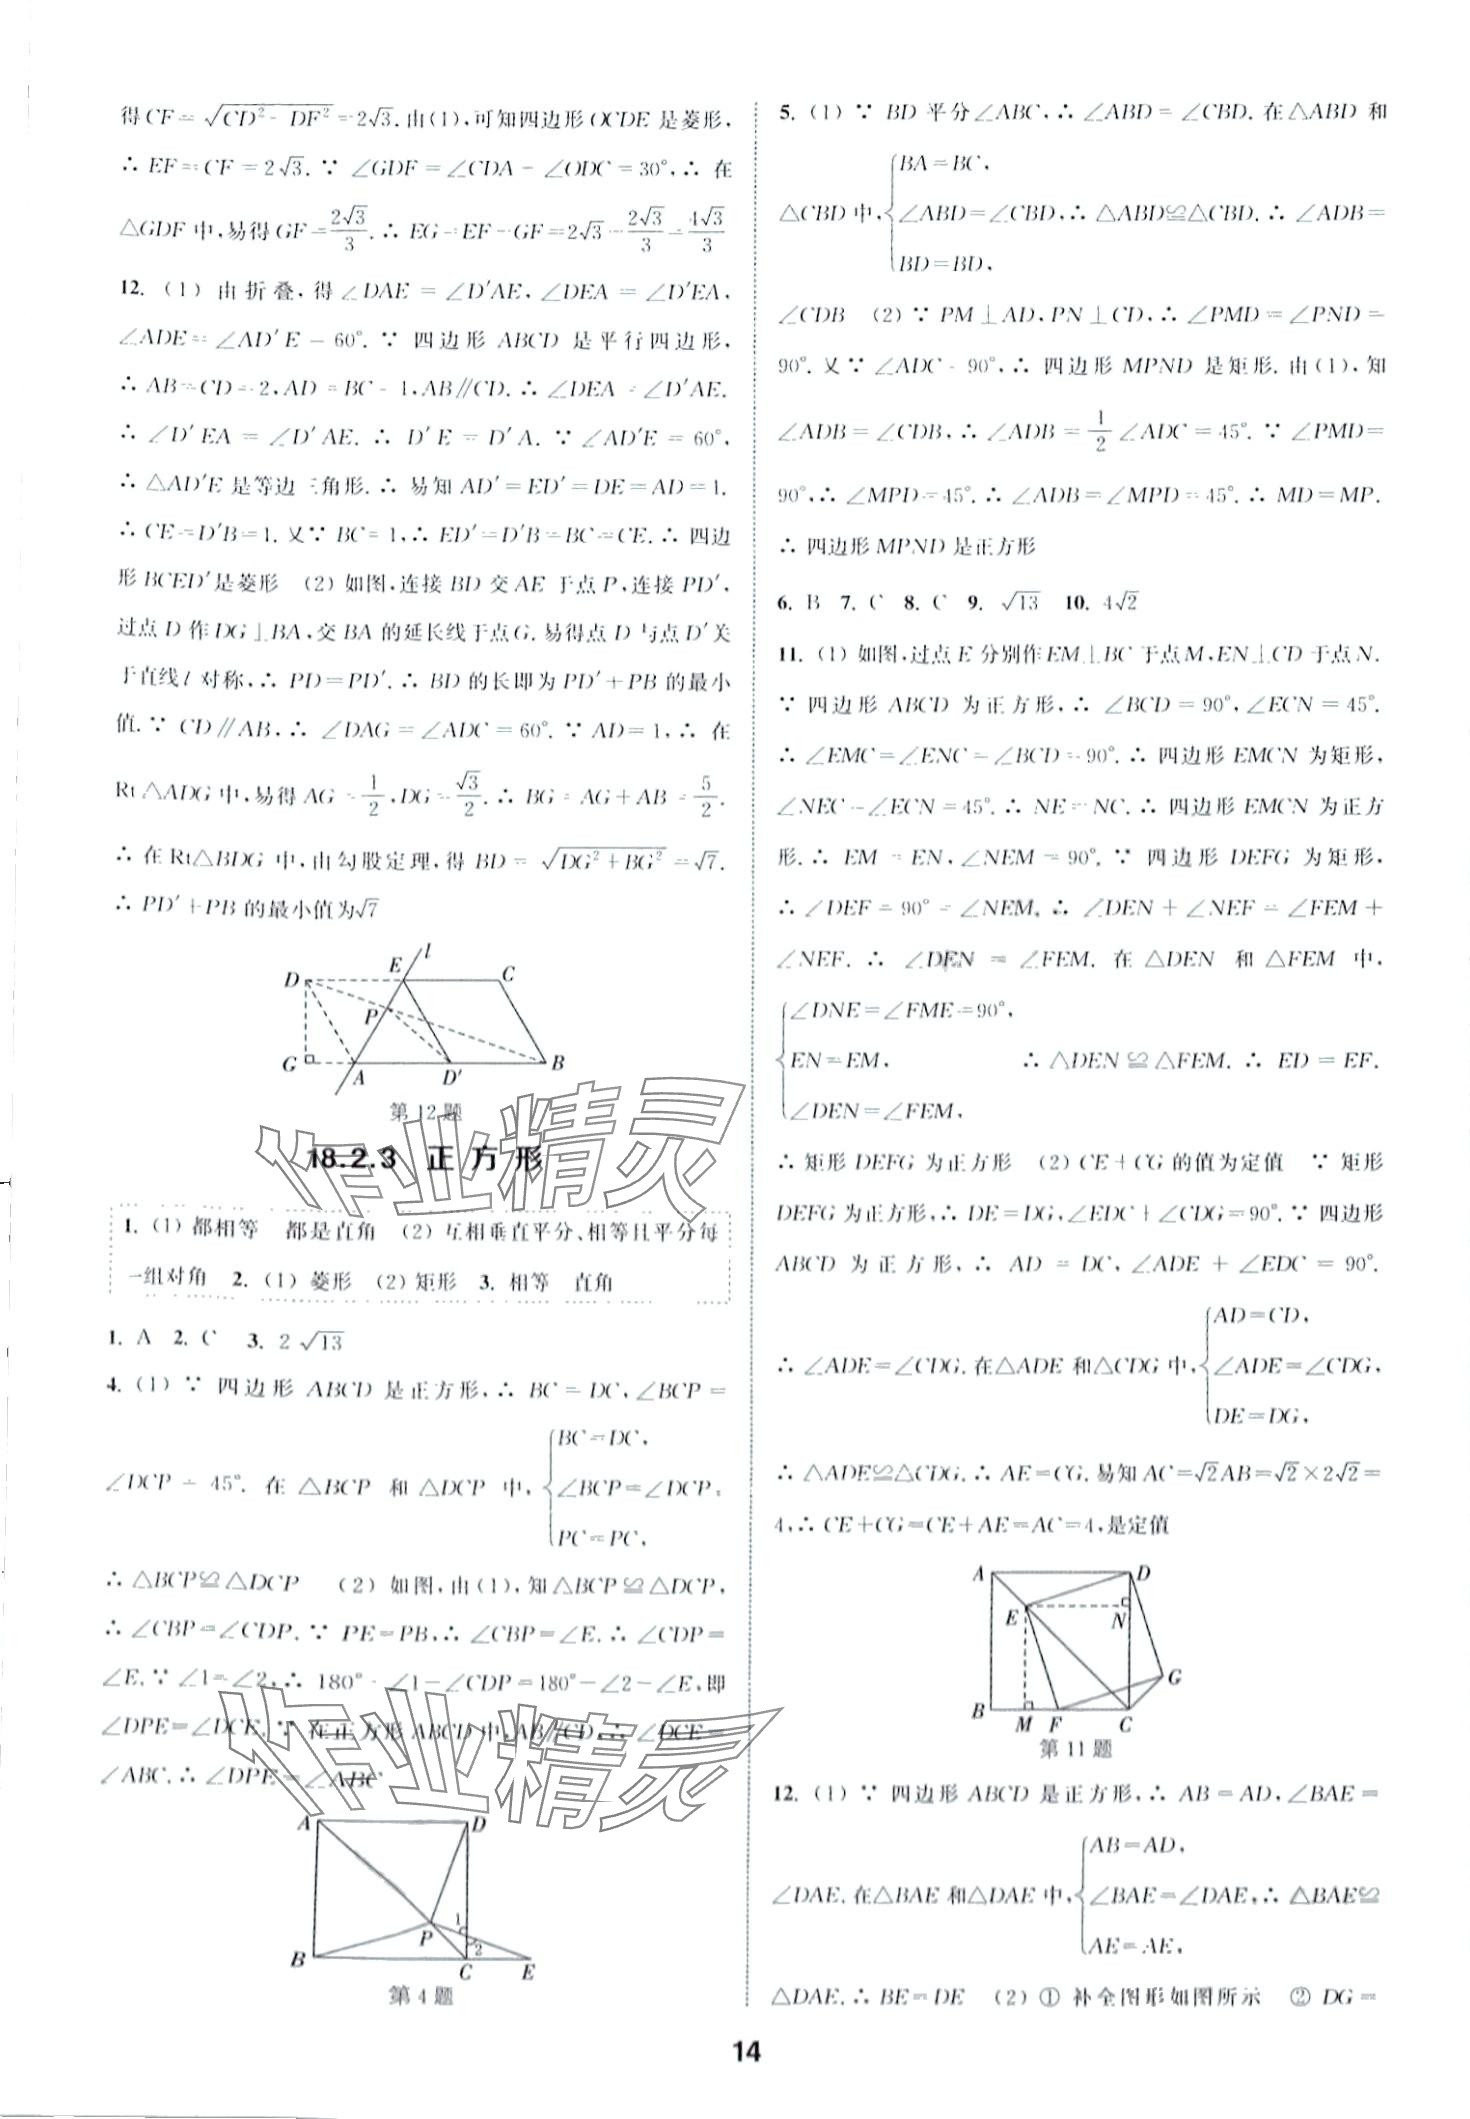 得CF=√(CD²-DF²)=2√3.由(1),可知四边形OCDE是菱形,
∴ EF=CF=2√3.∵ ∠GDF=∠CDA-∠ODC=30°,∴ 在
△GDF中,易得GF=2√3/3.∴ EG=EF-GF=2√3-2√3/3=4√3/3
12. (1) 由折叠,得∠DAE=∠D′AE,∠DEA=∠D′EA,
∠ADE=∠AD′E=60°.∵ 四边形ABCD是平行四边形,
∴ AB=CD=2,AD=BC=1,AB∥CD.∴ ∠DEA=∠D′AE.
∴ ∠D′EA=∠D′AE.∴ D′E=D′A.∵ ∠AD′E=60°,
∴ △AD′E是等边三角形.∴ 易知AD′=ED′=DE=AD=1.
∴ CE=D′B=1.又∵ BC=1,∴ ED′=D′B=BC=CE.∴ 四边
形BCED′是菱形 (2) 如图,连接BD交AE于点P,连接PD′,
过点D作DG⊥BA,交BA的延长线于点G.易得点D与点D′关
于直线l对称,∴ PD=PD′.∴ BD的长即为PD′+PB的最小
值.∵ CD∥AB,∴ ∠DAG=∠ADC=60°.∵ AD=1,∴ 在
Rt△ADG中,易得AG=1/2,DG=√3/2.∴ BG=AG+AB=5/2.
∴ 在Rt△BDG中,由勾股定理,得BD=√(DG²+BG²)=√7.
∴ PD′+PB的最小值为√7
D E l C
P
G A D′ B
第12题
18.2.3 正方形
1. (1) 都相等 都是直角 (2) 互相垂直平分、相等且平分每
一组对角 2. (1) 菱形 (2) 矩形 3. 相等 直角
1. A 2. C 3. 2√13
4. (1) ∵ 四边形ABCD是正方形,∴ BC=DC,∠BCP=
∠DCP=45°.在△BCP和△DCP中,{BC=DC,
∠BCP=∠DCP,
PC=PC,
∴ △BCP≌△DCP (2) 如图,由(1),知△BCP≌△DCP,
∴ ∠CBP=∠CDP.∵ PE=PB,∴ ∠CBP=∠E.∴ ∠CDP=
∠E.∵ ∠1=∠2,∴ 180°-∠1-∠CDP=180°-∠2-∠E,即
∠DPE=∠DCE.∵ 在正方形ABCD中,AB∥CD,∴ ∠DCE=
∠ABC.∴ ∠DPE=∠ABC
A D
P 1
2
B C E
第4题
5. (1) ∵ BD平分∠ABC,∴ ∠ABD=∠CBD.在△ABD和
△CBD中,{BA=BC,
∠ABD=∠CBD,∴ △ABD≌△CBD.∴ ∠ADB=
BD=BD,
∠CDB (2) ∵ PM⊥AD,PN⊥CD,∴ ∠PMD=∠PND=
90°.又∵ ∠ADC=90°,∴ 四边形MPND是矩形.由(1),知
∠ADB=∠CDB,∴ ∠ADB=1/2∠ADC=45°.∵ ∠PMD=
90°,∴ ∠MPD=45°.∴ ∠ADB=∠MPD=45°.∴ MD=MP.
∴ 四边形MPND是正方形
6. B 7. C 8. C 9. √13 10. 4√2
11. (1) 如图,过点E分别作EM⊥BC于点M,EN⊥CD于点N.
∵ 四边形ABCD为正方形,∴ ∠BCD=90°,∠ECN=45°.
∴ ∠EMC=∠ENC=∠BCD=90°.∴ 四边形EMCN为矩形,
∠NEC=∠ECN=45°.∴ NE=NC.∴ 四边形EMCN为正方
形.∴ EM=EN,∠NEM=90°.∵ 四边形DEFG为矩形,
∴ ∠DEF=90°=∠NEM.∴ ∠DEN+∠NEF=∠FEM+
∠NEF.∴ ∠DEN=∠FEM.在△DEN和△FEM中,
{∠DNE=∠FME=90°,
EN=EM, ∴ △DEN≌△FEM.∴ ED=EF.
∠DEN=∠FEM,
∴ 矩形DEFG为正方形 (2) CE+CG的值为定值 ∵ 矩形
DEFG为正方形,∴ DE=DG,∠EDC+∠CDG=90°.∵ 四边形
ABCD为正方形,∴ AD=DC,∠ADE+∠EDC=90°.
∴ ∠ADE=∠CDG.在△ADE和△CDG中,{AD=CD,
∠ADE=∠CDG,
DE=DG,
∴ △ADE≌△CDG.∴ AE=CG.易知AC=√2AB=√2×2√2=
4,∴ CE+CG=CE+AE=AC=4,是定值
A D
E N
G
B M F C
第11题
12. (1) ∵ 四边形ABCD是正方形,∴ AB=AD,∠BAE=
∠DAE.在△BAE和△DAE中,{AB=AD,
∠BAE=∠DAE,∴ △BAE≌
AE=AE,
△DAE.∴ BE=DE (2) ① 补全图形如图所示 ② DG=
14
作业精灵
作业精灵